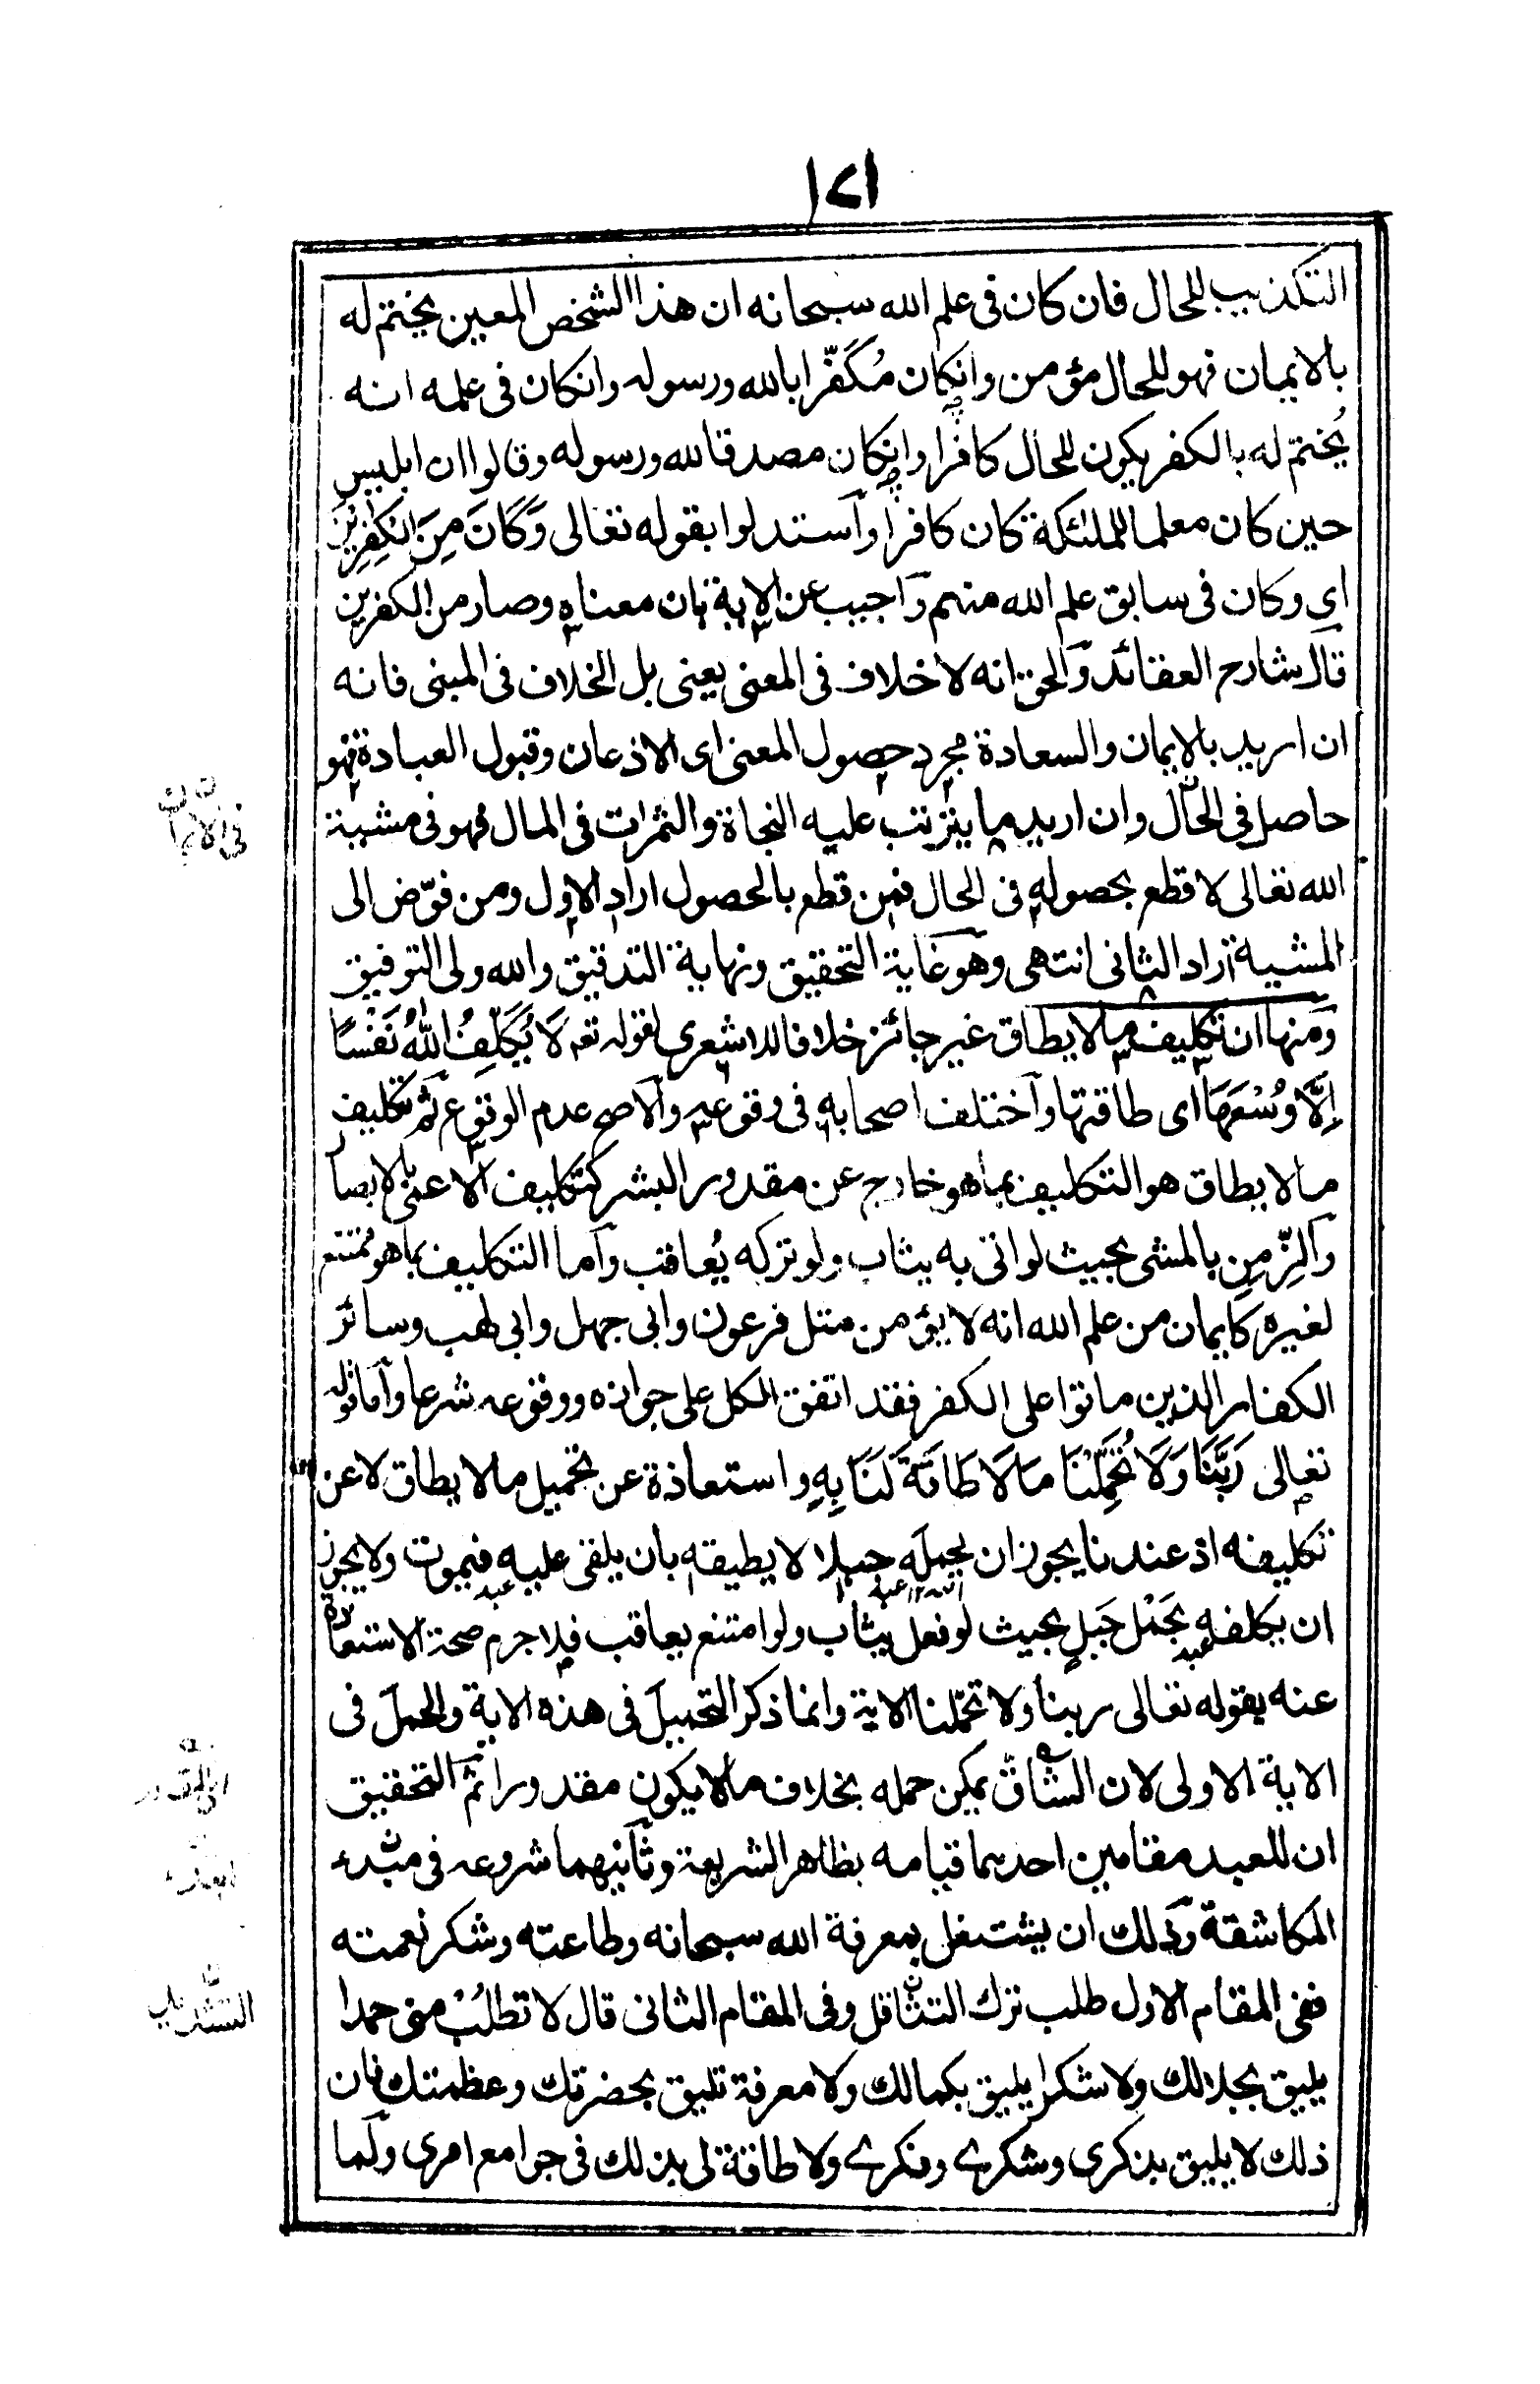 ١٧١
التكذيب للحال فان كان فى علم الله سبحانه ان هذا الشخص المعين يختم له
بالايمان فهو للحال مؤمن وانكان مكفّرا بالله ورسوله وانكان فى علمه انه
يُختم له بالكفر يكون للحال كافرا وانكان مصدقا لله ورسوله وقالوا ان ابليس
حين كان معلما للملئكة كان كافرا واستدلوا بقوله تعالى وَكَانَ مِنَ الْكٰفِرِيْنَ
اى وكان فى سابق علم الله منهم واجيب عن الاية بان معناه وصار من الكفرين
قال شارح العقائد والحق انه لا خلاف فى المعنى يعنى بل الخلاف فى المبنى فانه
ان اريد بالايمان والسعادة مجرد حصول المعنى اى الاذعان وقبول العبادة فهو
حاصل فى الحال وان اريد ما يترتب عليه النجاة والثمرات فى المال فهو فى مشيئة
الله تعالى لا قطع بحصوله فى الحال فمن قطع بالحصول اراد الاول ومن فوّض الى
المشية اراد الثانى انتهى وهو غاية التحقيق ونهاية التدقيق والله ولى التوفيق
ومنها ان تكليف ما لا يطاق غير جائز خلافا للاشعرى لقوله تعه لَا يُكَلِّفُ اللّٰهُ نَفْسًا
اِلَّا وُسْعَهَا اى طاقتها واختلف اصحابه فى وقوعه والاصح عدم الوقوع ثم تكليف
ما لا يطاق هو التكليف بما هو خارج عن مقدور البشر كتكليف الاعمى بالابصار
والزِّمِن بالمشى بحيث لو اتى به يثاب ولو تركه يُعاقب واما التكليف بما هو ممتنع
لغيره كايمان من علم الله انه لا يؤمن مثل فرعون وابى جهل وابى لهب وسائر
الكفار الذين ماتوا على الكفر فقد اتفق الكل على جوازه ووقوعه شرعا واما قوله
تعالى رَبَّنَا وَلَا تُحَمِّلْنَا مَا لَا طَاقَةَ لَنَا بِهٖ واستعاذة عن تحميل ما لا يطاق لا عن
تكليفه اذ عندنا يجوز ان يحمله جبلا لا يطيقه بان يلقى عليه فيموت ولا يجوز
ان يكلفه بحَمْل جَبلٍ بحيث لو فعل يثاب ولو امتنع يعاقب فلا جرم صحة الاستعاذة
عنه بقوله تعالى ربنا ولا تحمّلنا الاية وانما ذكر التحميل فى هذه الاية والحمل فى
الاية الاولى لان الشاق يمكن حمله بخلاف ما لا يكون مقدورا ثم التحقيق
ان للعبد مقامين احدهما قيامه بظاهر الشريعة وثانيهما شروعه فى مبدء
المكاشفة وذلك ان يشتغل بمعرفة الله سبحانه وطاعته وشكر نعمته
ففى المقام الاول طلب ترك التثاقل وفى المقام الثانى قال لا تطلُبْ منى حمدا
يليق بجلالك ولا شكرا يليق بكمالك ولا معرفة تليق بحضرتك وعظمتك فان
ذلك لا يليق بذكرى وشكرى وفكرى ولا طاقة لى بذلك فى جوامع امرى ولما